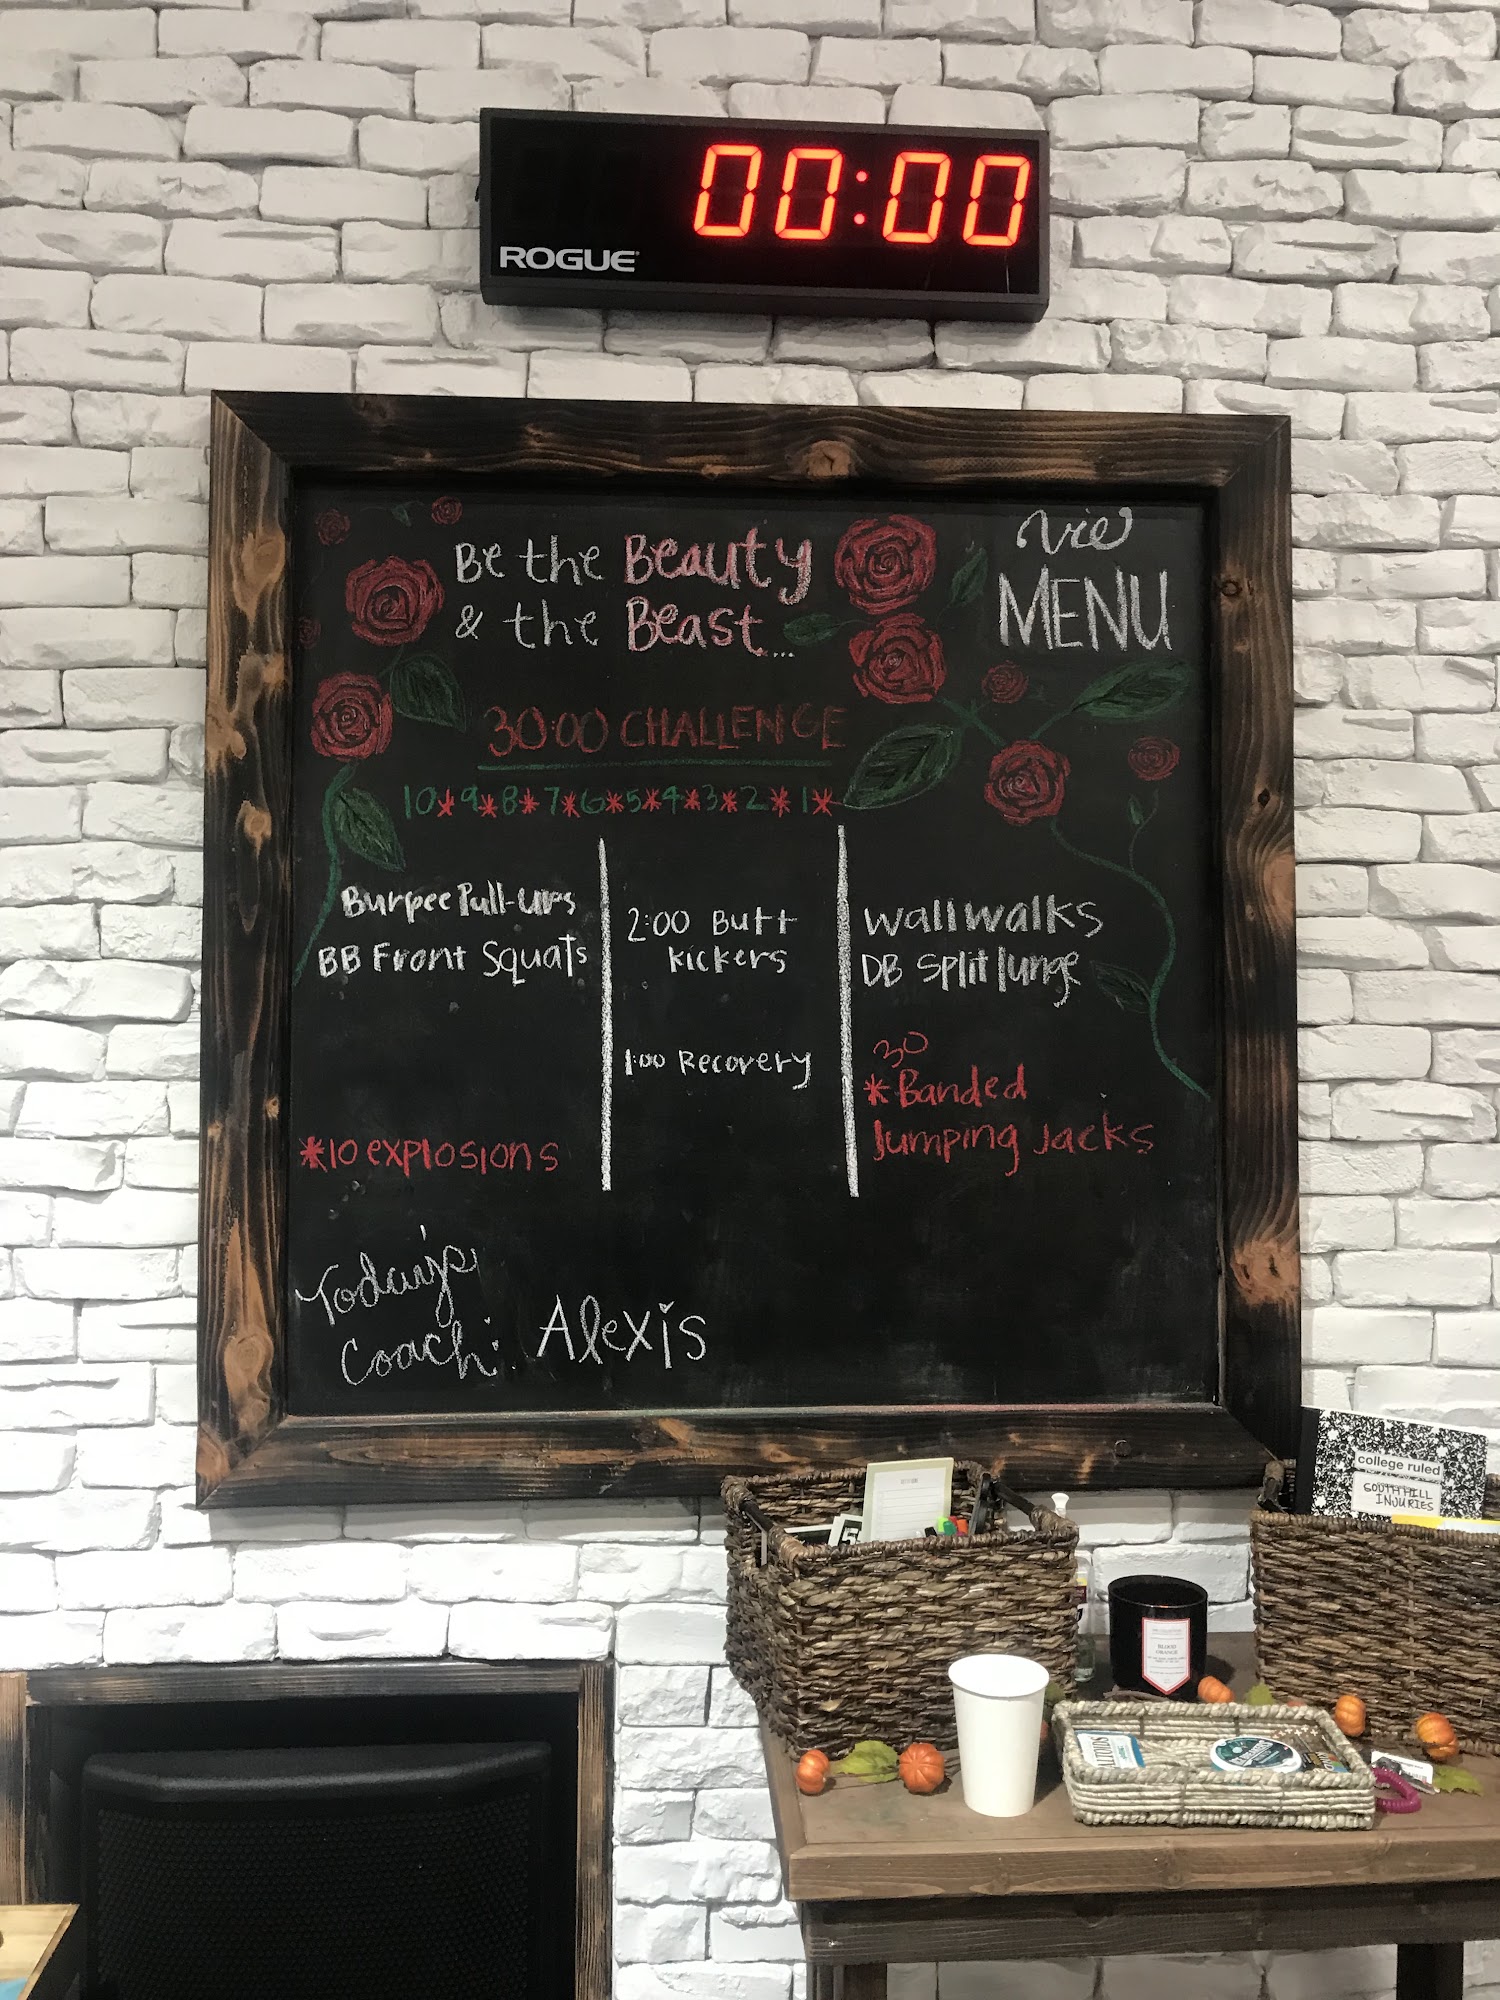 00:00
ROGUE
Be the Beauty
& the Beast...
vie
MENU
30:00 CHALLENGE
10*9*8*7*6*5*4*3*2*1*
Burpee Pull-ups
BB Front Squats
*10 explosions
2:00 Butt
kickers
1:00 Recovery
Wall walks
DB Split lunge
30
*Banded
Jumping Jacks
Today's
Coach:
Alexis
college ruled
SOUTH HILL
INJURIES
BLOOD
ORANGE
ALTOIDS